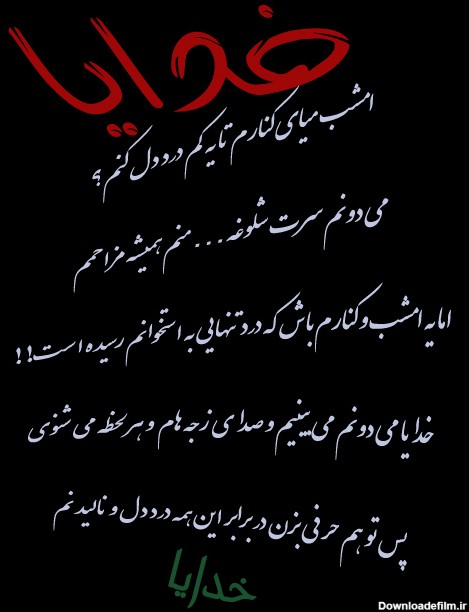 خدایا
امشب میای کنارم تا یه کم درد دل کنم ؟
می دونم سرت شلوغه . . . منم همیشه مزاحمم
اما یه امشب و کنارم باش که درد تنهایی به استخوانم رسیده است ! !
خدایا می دونم می بینیم و صدای زجه هام و هر لحظه می شنوی
پس تو هم حرفی بزن در برابر این همه درد دل و نالیدنم
خدایا
Downloadefilm.ir